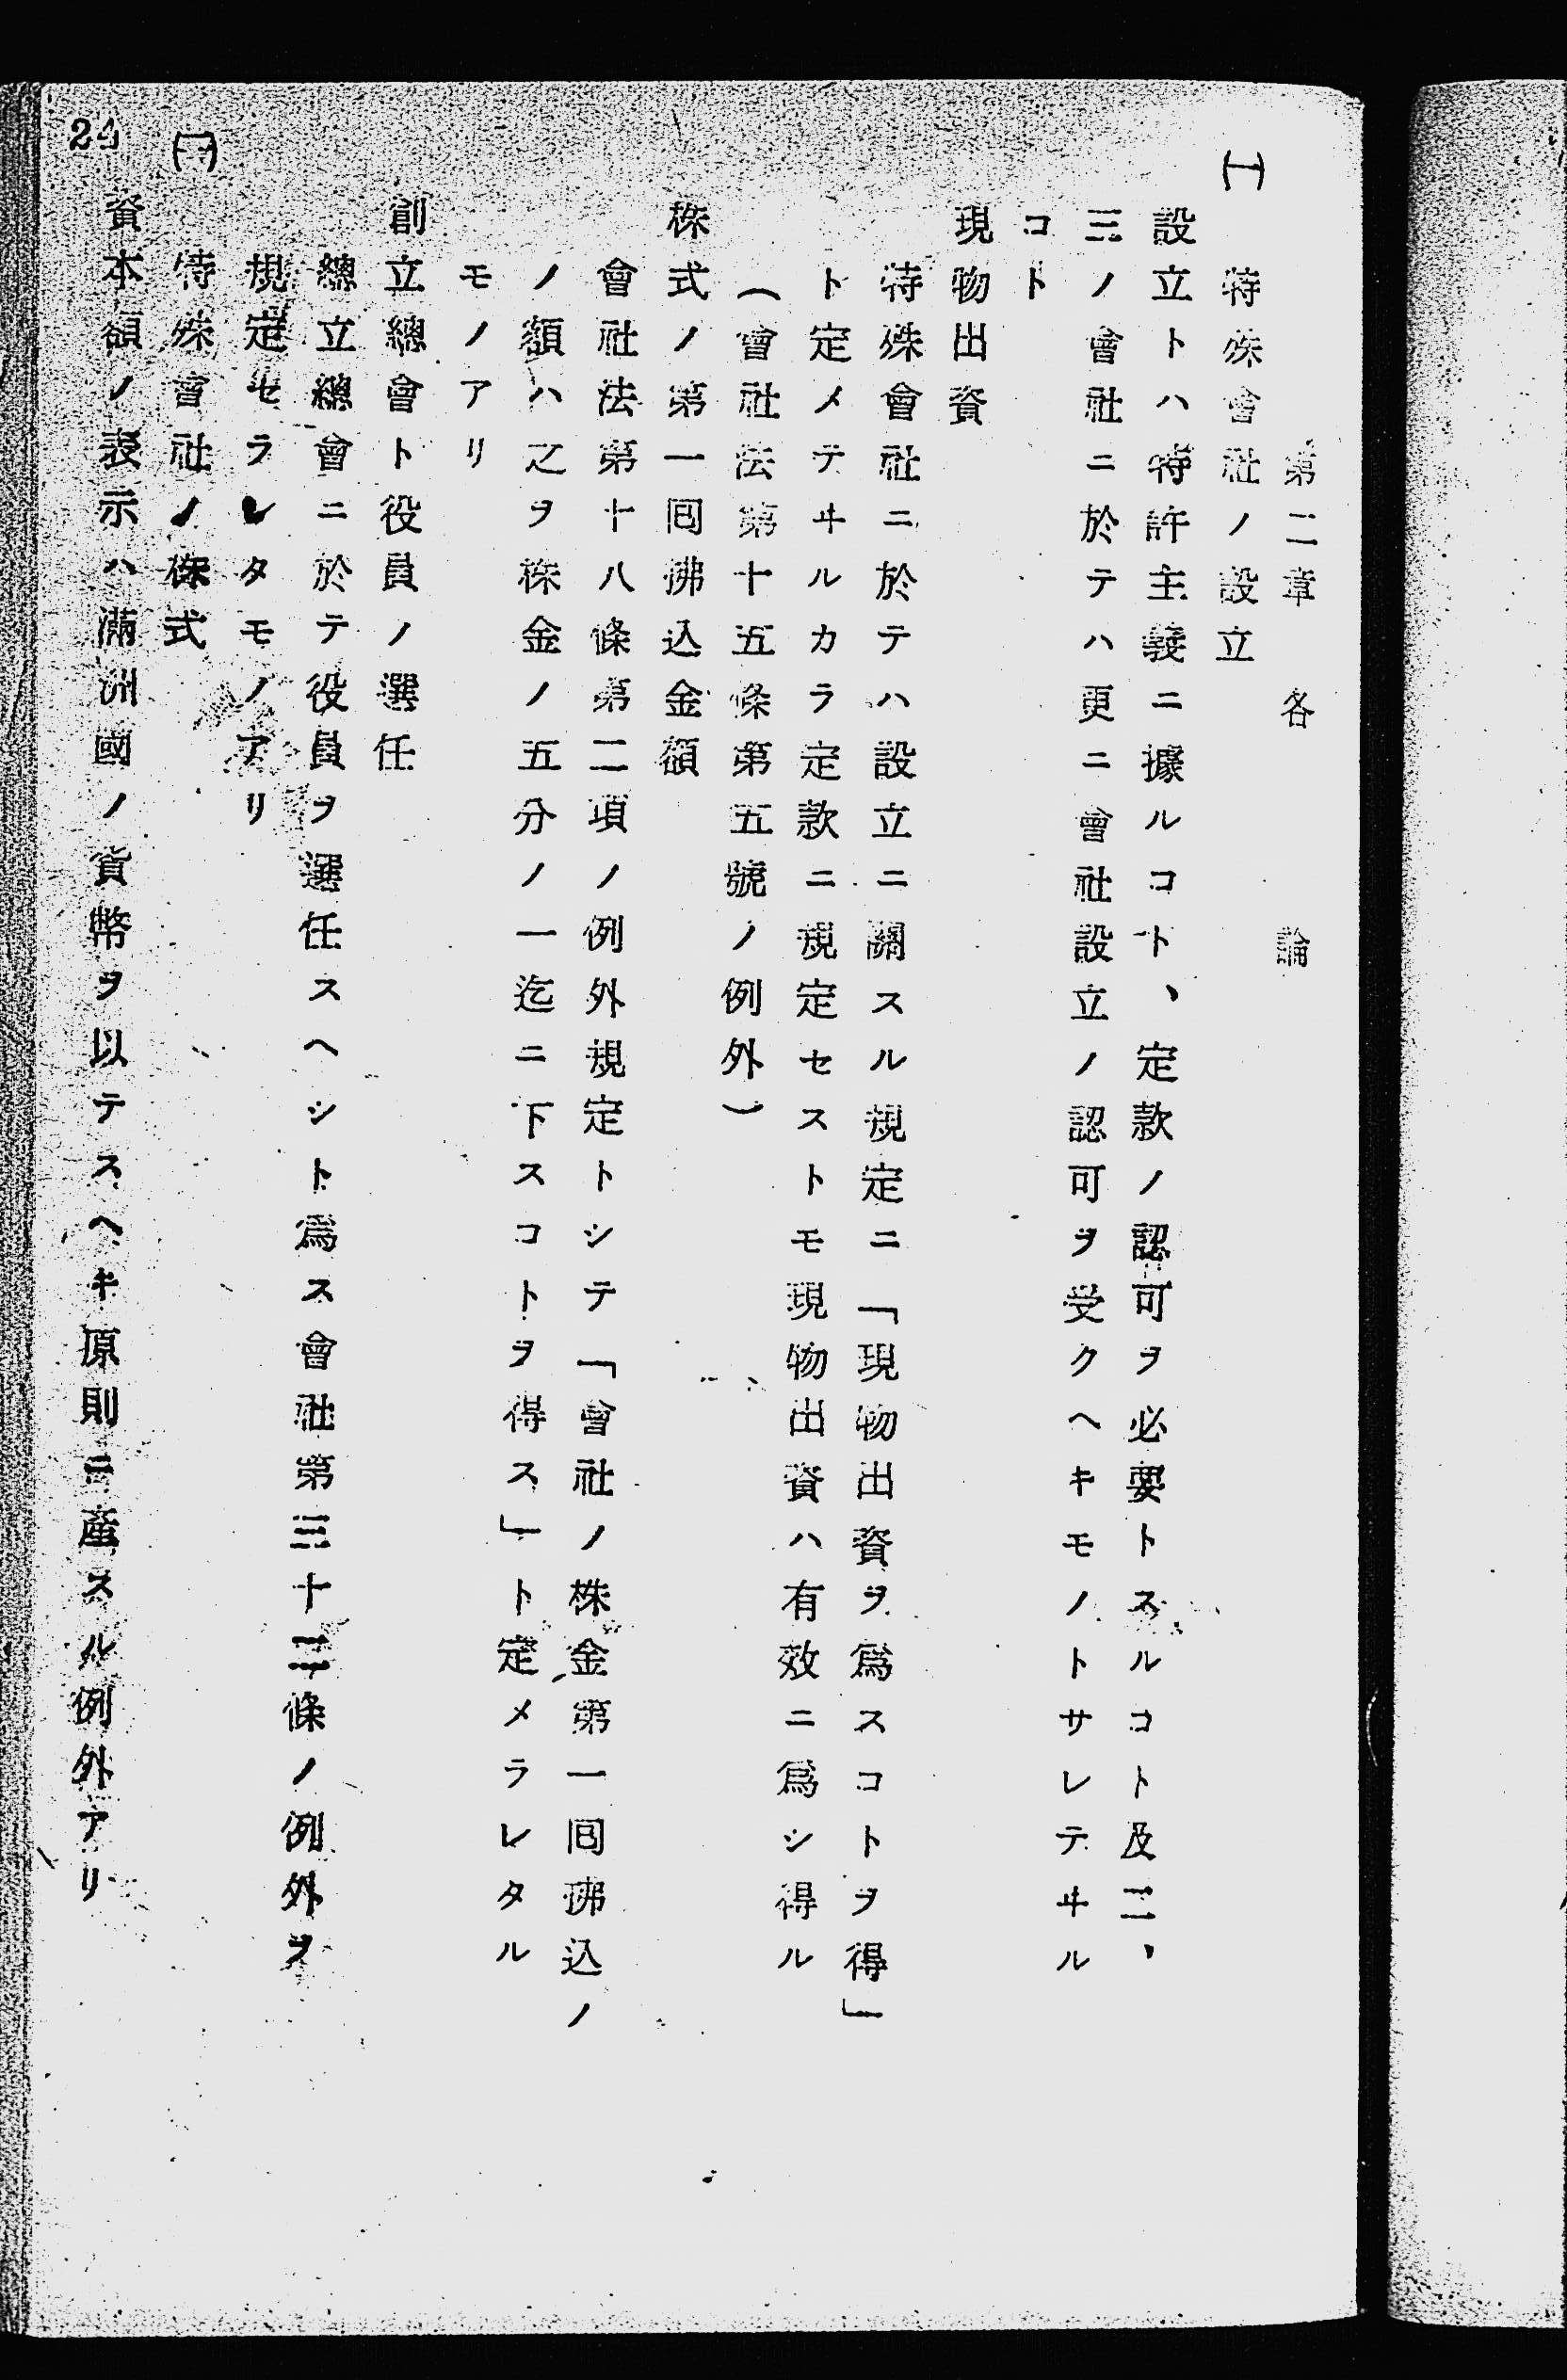 第二章　各　論
(一)　特殊會社ノ設立
設立トハ特許主義ニ據ルコト、定款ノ認可ヲ必要トスルコト及二、
三ノ會社ニ於テハ更ニ會社設立ノ認可ヲ受クヘキモノトサレテヰル
コト
現物出資
特殊會社ニ於テハ設立ニ關スル規定ニ「現物出資ヲ爲スコトヲ得」
ト定メテヰルカラ定款ニ規定セストモ現物出資ハ有效ニ爲シ得ル
(會社法第十五條第五號ノ例外)
株式ノ第一囘拂込金額
會社法第十八條第二項ノ例外規定トシテ「會社ノ株金第一囘拂込ノ
ノ額ハ之ヲ株金ノ五分ノ一迄ニ下スコトヲ得ス」ト定メラレタル
モノアリ
創立總會ト役員ノ選任
總立總會ニ於テ役員ヲ選任スヘシト爲ス會社第三十二條ノ例外ヲ
規定セラレタモノアリ
(二)　特殊會社ノ株式
資本額ノ表示ハ滿洲國ノ貨幣ヲ以テスヘキ原則ニ產スル例外アリ